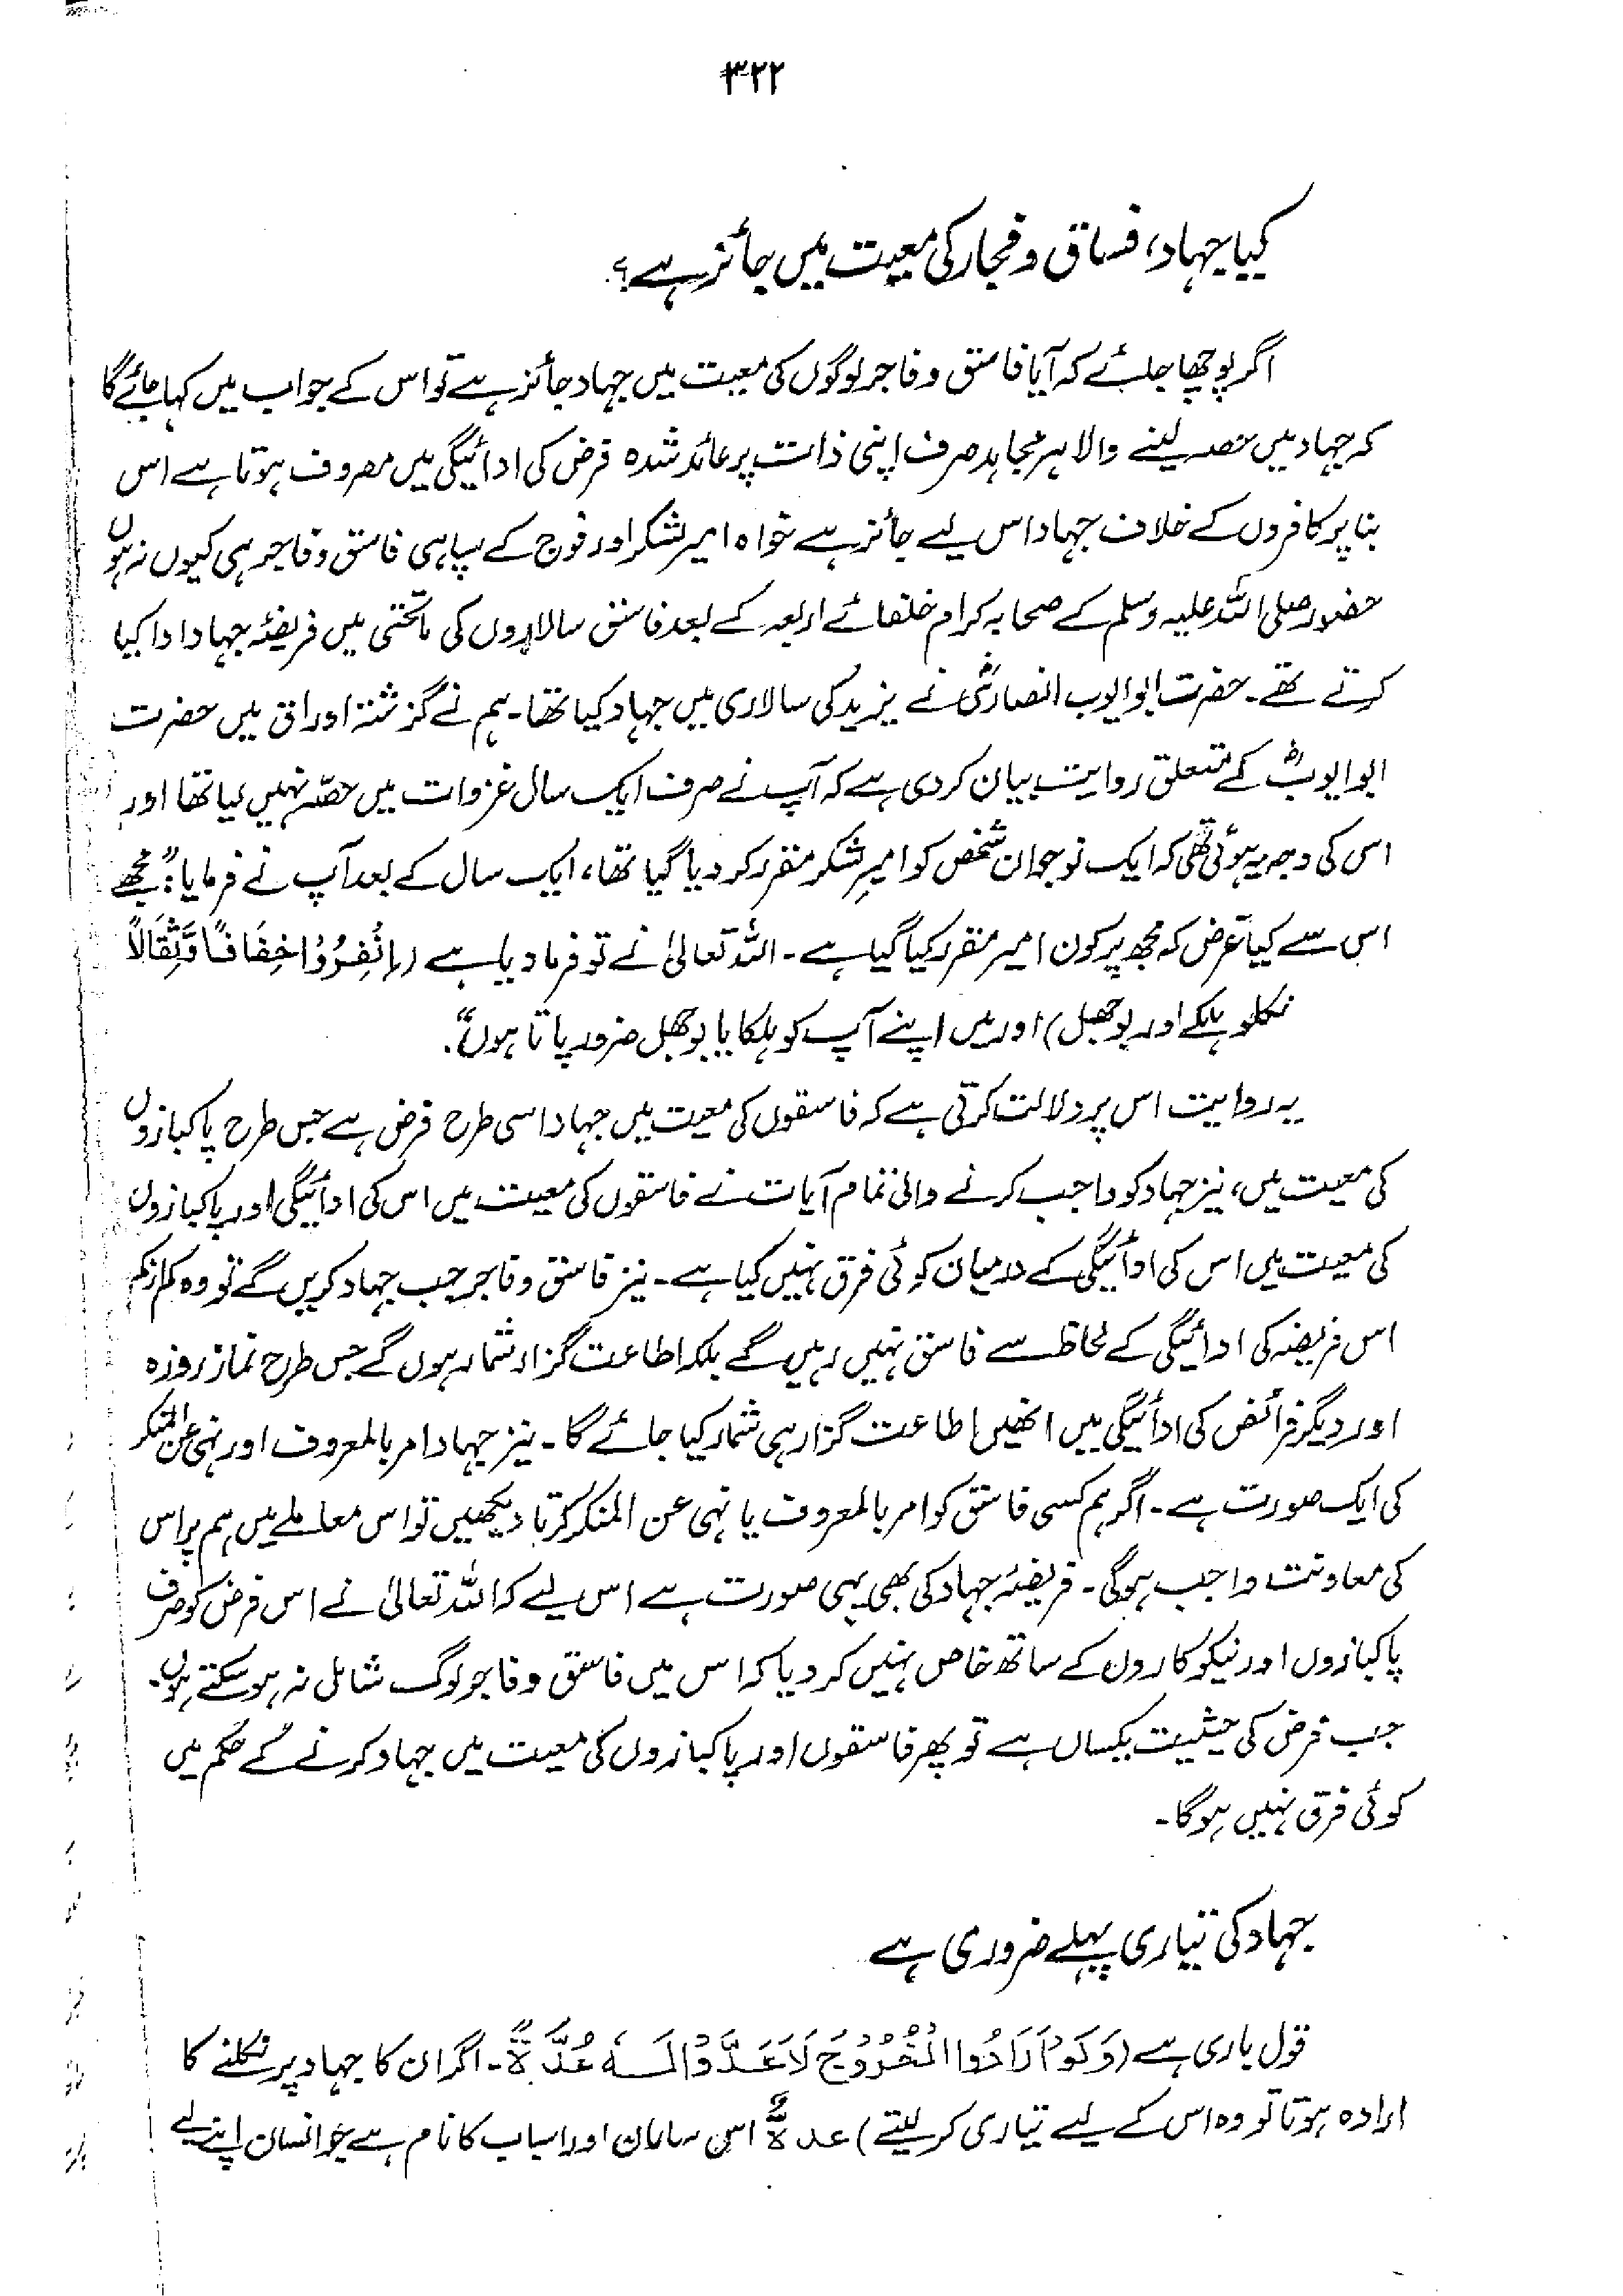 ۳۲۲
کیا جہاد، فساق و فجار کی معیت میں جائز ہے؟
اگر پوچھا جلئے کہ آیا فاسق و فاجر لوگوں کی معیت میں جہاد جائز ہے تو اس کے جواب میں کہا جائے گا
کہ جہاد میں حصہ لینے والا ہر مجاہد صرف اپنی ذات پر عائد شدہ فرض کی ادائیگی میں مصروف ہوتا ہے اس
بنا پر کافروں کے خلاف جہاد اس لیے جائز ہے خواہ امیر لشکر اور فوج کے سپاہی فاسق و فاجر ہی کیوں نہ ہوں
حضور صلی اللہ علیہ وسلم کے صحابہ کرام خلفائے اربعہ کے بعد فاسق سالاروں کی ماتحتی میں فریضۂ جہاد ادا کیا
کرتے تھے۔ حضرت ابوایوب انصاریؓ نے یزید کی سالاری میں جہاد کیا تھا۔ ہم نے گزشتہ اوراق میں حضرت
ابوایوبؓ کے متعلق روایت بیان کر دی ہے کہ آپ نے صرف ایک سال غزوات میں حصّہ نہیں لیا تھا اور
اس کی وجہ یہ ہوئی تھی کہ ایک نوجوان شخص کو امیرِ لشکر مقرر کر دیا گیا تھا، ایک سال کے بعد آپ نے فرمایا: "مجھے
اس سے کیا غرض کہ مجھ پر کون امیر مقرر کیا گیا ہے۔ اللہ تعالیٰ نے تو فرما دیا ہے (اِنْفِرُوْا خِفَافًا وَّثِقَالًا
نکلو ہلکے اور بوجھل) اور میں اپنے آپ کو ہلکا یا بوجھل ضرور پاتا ہوں"۔
یہ روایت اس پر دلالت کرتی ہے کہ فاسقوں کی معیت میں جہاد اسی طرح فرض ہے جس طرح پاکبازوں
کی معیت میں، نیز جہاد کو واجب کرنے والی تمام آیات نے فاسقوں کی معیت میں اس کی ادائیگی اور پاکبازوں
کی معیت میں اس کی ادائیگی کے درمیان کوئی فرق نہیں کیا ہے۔ نیز فاسق و فاجر جب جہاد کریں گے تو وہ کم از کم
اس فریضہ کی ادائیگی کے لحاظ سے فاسق نہیں رہیں گے بلکہ اطاعت گزار شمار ہوں گے جس طرح نماز روزہ
اور دیگر فرائض کی ادائیگی میں انھیں اطاعت گزار ہی شمار کیا جائے گا۔ نیز جہاد امر بالمعروف اور نہی عن المنکر
کی ایک صورت ہے۔ اگر ہم کسی فاسق کو امر بالمعروف یا نہی عن المنکر کرتا دیکھیں تو اس معاملے میں ہم پر اس
کی معاونت واجب ہوگی۔ فریضۂ جہاد کی بھی یہی صورت ہے اس لیے کہ اللہ تعالیٰ نے اس فرض کو صرف
پاکبازوں اور نیکوکاروں کے ساتھ خاص نہیں کر دیا کہ اس میں فاسق و فاجر لوگ شامل نہ ہو سکتے ہوں۔
جب فرض کی حیثیت یکساں ہے تو پھر فاسقوں اور پاکبازوں کی معیت میں جہاد کرنے کے حکم میں
کوئی فرق نہیں ہوگا۔
جہاد کی تیاری پہلے ضروری ہے
قول باری ہے (وَلَوْ اَرَادُوا الْخُرُوْجَ لَاَعَدُّوْا لَـــهٗ عُدَّةً۔ اگر ان کا جہاد پر نکلنے کا
ارادہ ہوتا تو وہ اس کے لیے تیاری کر لیتے) عدۃٌ اس سامان اور اسباب کا نام ہے جو انسان اپنے لیے